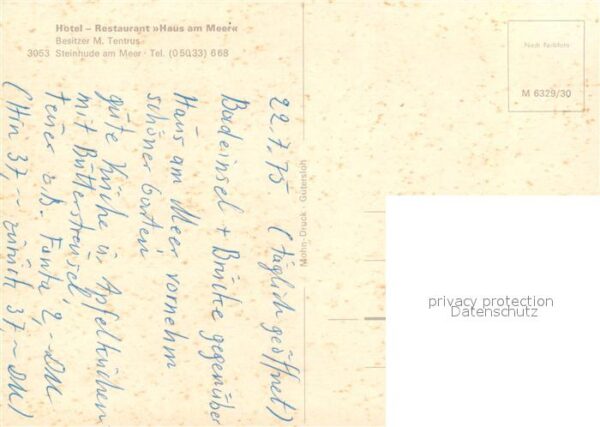 Hotel – Restaurant »Haus am Meer«
Besitzer M. Tentrus
3053 Steinhude am Meer · Tel. (05033) 668
Nach Farbfoto
M 6329/30
Mohn-Druck · Gütersloh
22.7.75 (täglich geöffnet)
Badeinsel + Brücke gegenüber
Haus am Meer vornehm
schöner Garten,
gute Küche u. Apfelkuchen
mit Butterstreusel,
teuer z.B. Fanta 2,– DM
(Hin 37,– zurück 37,– DM)
privacy protection
Datenschutz